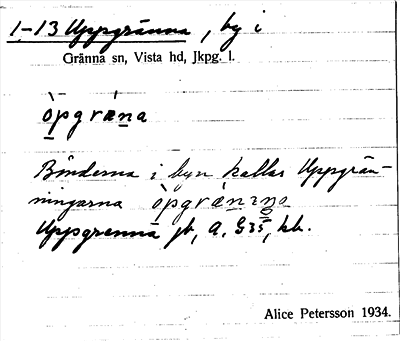 1–13 Uppgränna, by i
Gränna sn, Vista hd, Jkpg. l.
òpgræ̀na
Bönderna i byn kallas Uppgrän-
ningarna òpgræ̀nɪŋa
Uppgrenna jb, A. G35, kb.
Alice Petersson 1934.